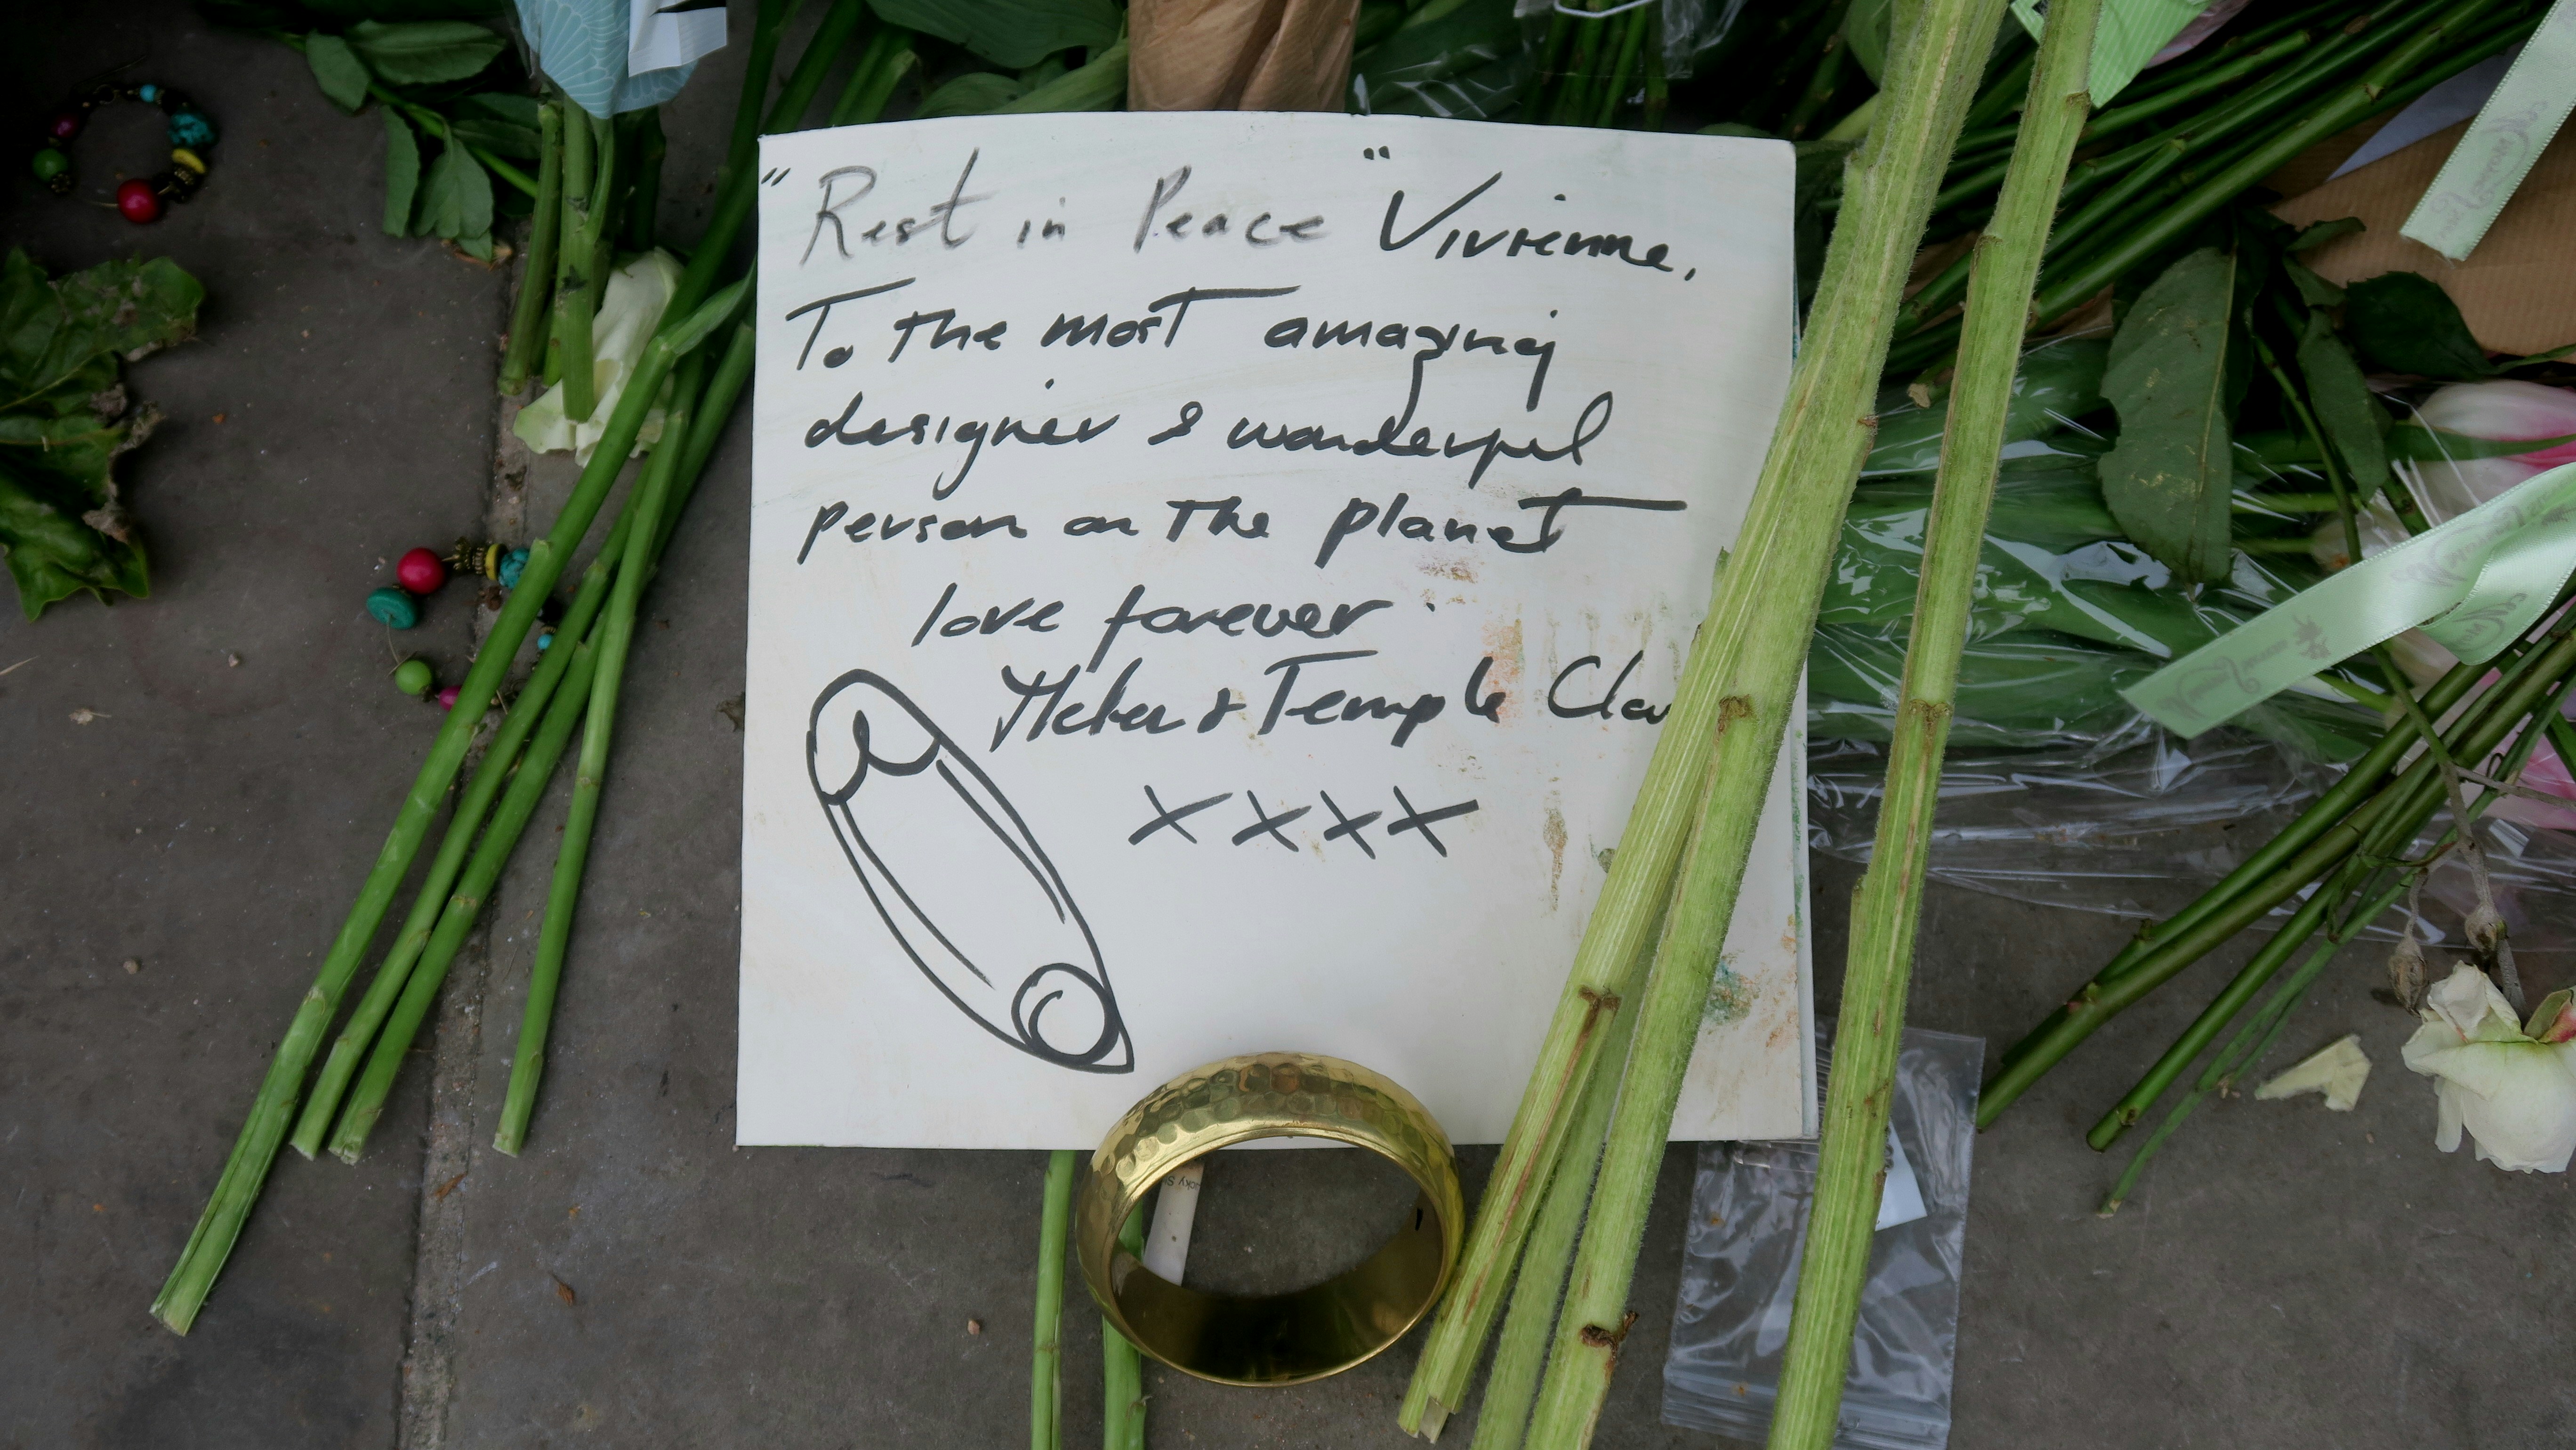 "Rest in Peace" Vivienne,
To the most amazing
designer & wonderful
person on the planet
love forever.
& Temple
xxxx